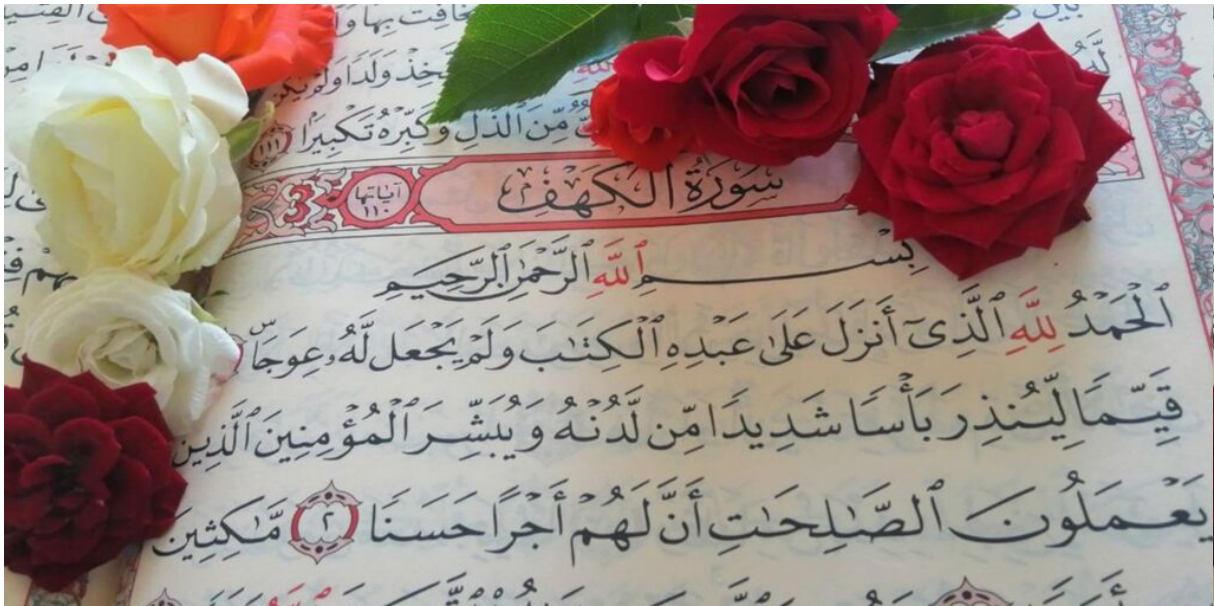 تَّخِذْ وَلَدًا وَلَمْ يَكُن
مِّنَ ٱلذُّلِّ وَكَبِّرْهُ تَكْبِيرًا ١١١
سُورَةُ الكَهْفِ آياتها ١١٠
بِسْمِ ٱللَّهِ ٱلرَّحْمَٰنِ ٱلرَّحِيمِ
ٱلْحَمْدُ لِلَّهِ ٱلَّذِىٓ أَنزَلَ عَلَىٰ عَبْدِهِ ٱلْكِتَٰبَ وَلَمْ يَجْعَل لَّهُۥ عِوَجَاۜ
قَيِّمًا لِّيُنذِرَ بَأْسًا شَدِيدًا مِّن لَّدُنْهُ وَيُبَشِّرَ ٱلْمُؤْمِنِينَ ٱلَّذِينَ
يَعْمَلُونَ ٱلصَّٰلِحَٰتِ أَنَّ لَهُمْ أَجْرًا حَسَنًا ٢ مَّٰكِثِينَ